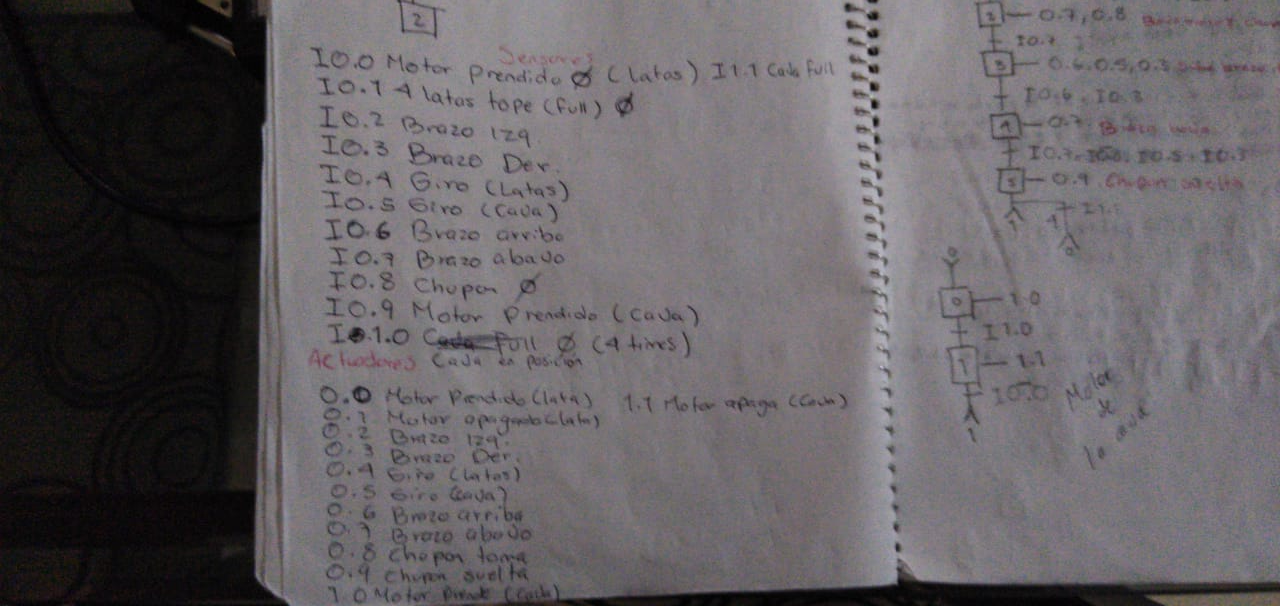 2
Sensores
I0.0 Motor prendido Ø (latas) I1.1 Caja full
I0.1 4 latas tope (full) Ø
I0.2 Brazo izq
I0.3 Brazo Der.
I0.4 Giro (Latas)
I0.5 Giro (Caja)
I0.6 Brazo arriba
I0.7 Brazo abajo
I0.8 Chupon Ø
I0.9 Motor prendido (caja)
I1.0 Full Ø (4 tires)
Actuadores Caja en posicion
0.0 Motor Prendido (lata) 1.1 Motor apaga (Caja)
0.1 Motor apagado (lata)
0.2 Brazo izq.
0.3 Brazo Der.
0.4 Giro (latas)
0.5 Giro (caja)
0.6 Brazo arriba
0.7 Brazo abajo
0.8 Chupon toma
0.9 Chupon suelta
1.0 Motor prende (caja)
2 0.7, 0.8
I0.7
3 0.6, 0.5, 0.3
I0.6 . I0.3
4 0.7 Brazo
5 0.9 Chupon suelta
1
0
0 1.0
I1.0
1 1.1
I0.0
1
Motor
de
la